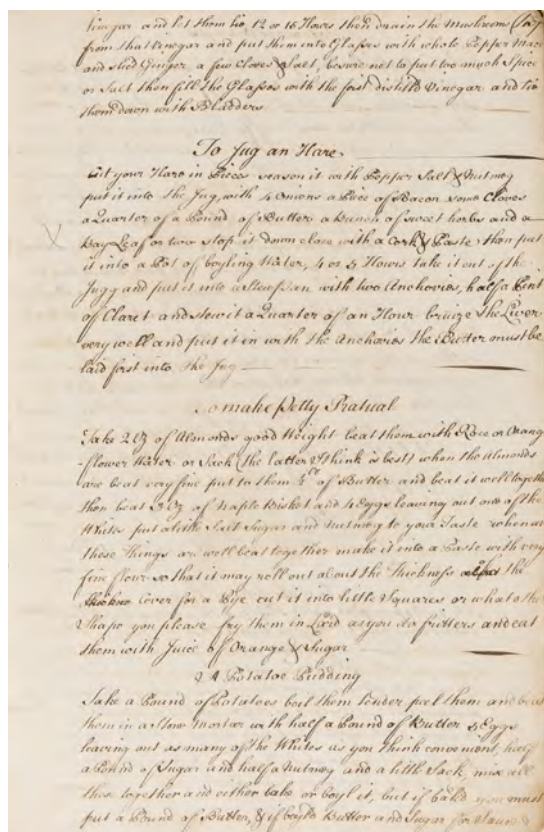 Vinegar and let them lie 12 or 16 Hours then drain the Mushrooms
from that Vinegar and put them into Glasses with whole Pepper Mace
and sliced Ginger a few Cloves & Salt, beware not to put too much Spice
or Salt then fill the Glasses with the first distill'd Vinegar and tie
them down with Bladders
To Jug an Hare
Cut your Hare in Pieces season it with Pepper Salt & Nutmeg
put it into the Jug, with 4 Onions a Piece of Bacon some Cloves
a Quarter of a Pound of Butter a Bunch of sweet herbs and a
Bay Leaf or two stop it down close with a Cork & Paste then put
it into a Pot of boyling Water, 4 or 5 Hours take it out of the
Jugg and put it into a Stew pan with two Anchovies, half a Pint
of Claret and stew it a Quarter of an Hour bruize the Liver
very well and put it in with the Anchovies the Butter must be
laid first into the Jug
To make Petty Pratual
Take 2 Oz of Almonds good Weight beat them with Rose or Orange
flower Water or Sack (the latter I think is best) when the Almonds
are beat very fine put to them of Butter and beat it well togeth
then beat Oz of Naple Bisket and 4 Eggs leaving out one of the
Whites put a little Salt Sugar and Nutmeg to your Taste when all
these Things are well beat together make it into a Paste with very
fine flour so that it may roll out about the Thickness the
Cover for a Pye cut it into little Squares or what othe
Shape you please fry them in Lard as you do fritters and eat
them with Juice of Orange & Sugar
A Potatoe Pudding
Take a Pound of Potatoes boil them tender peel them and beat
them in a stone Mortar with half a Pound of Butter Eggs
leaving out as many of the Whites as you think convenient, half
a Pound of Sugar and half a Nutmeg and a little Sack, mix all
these together and either bake or boyl it, but if bak'd you must
put a Pound of Butter, & if boyld Butter and Sugar for Sauce